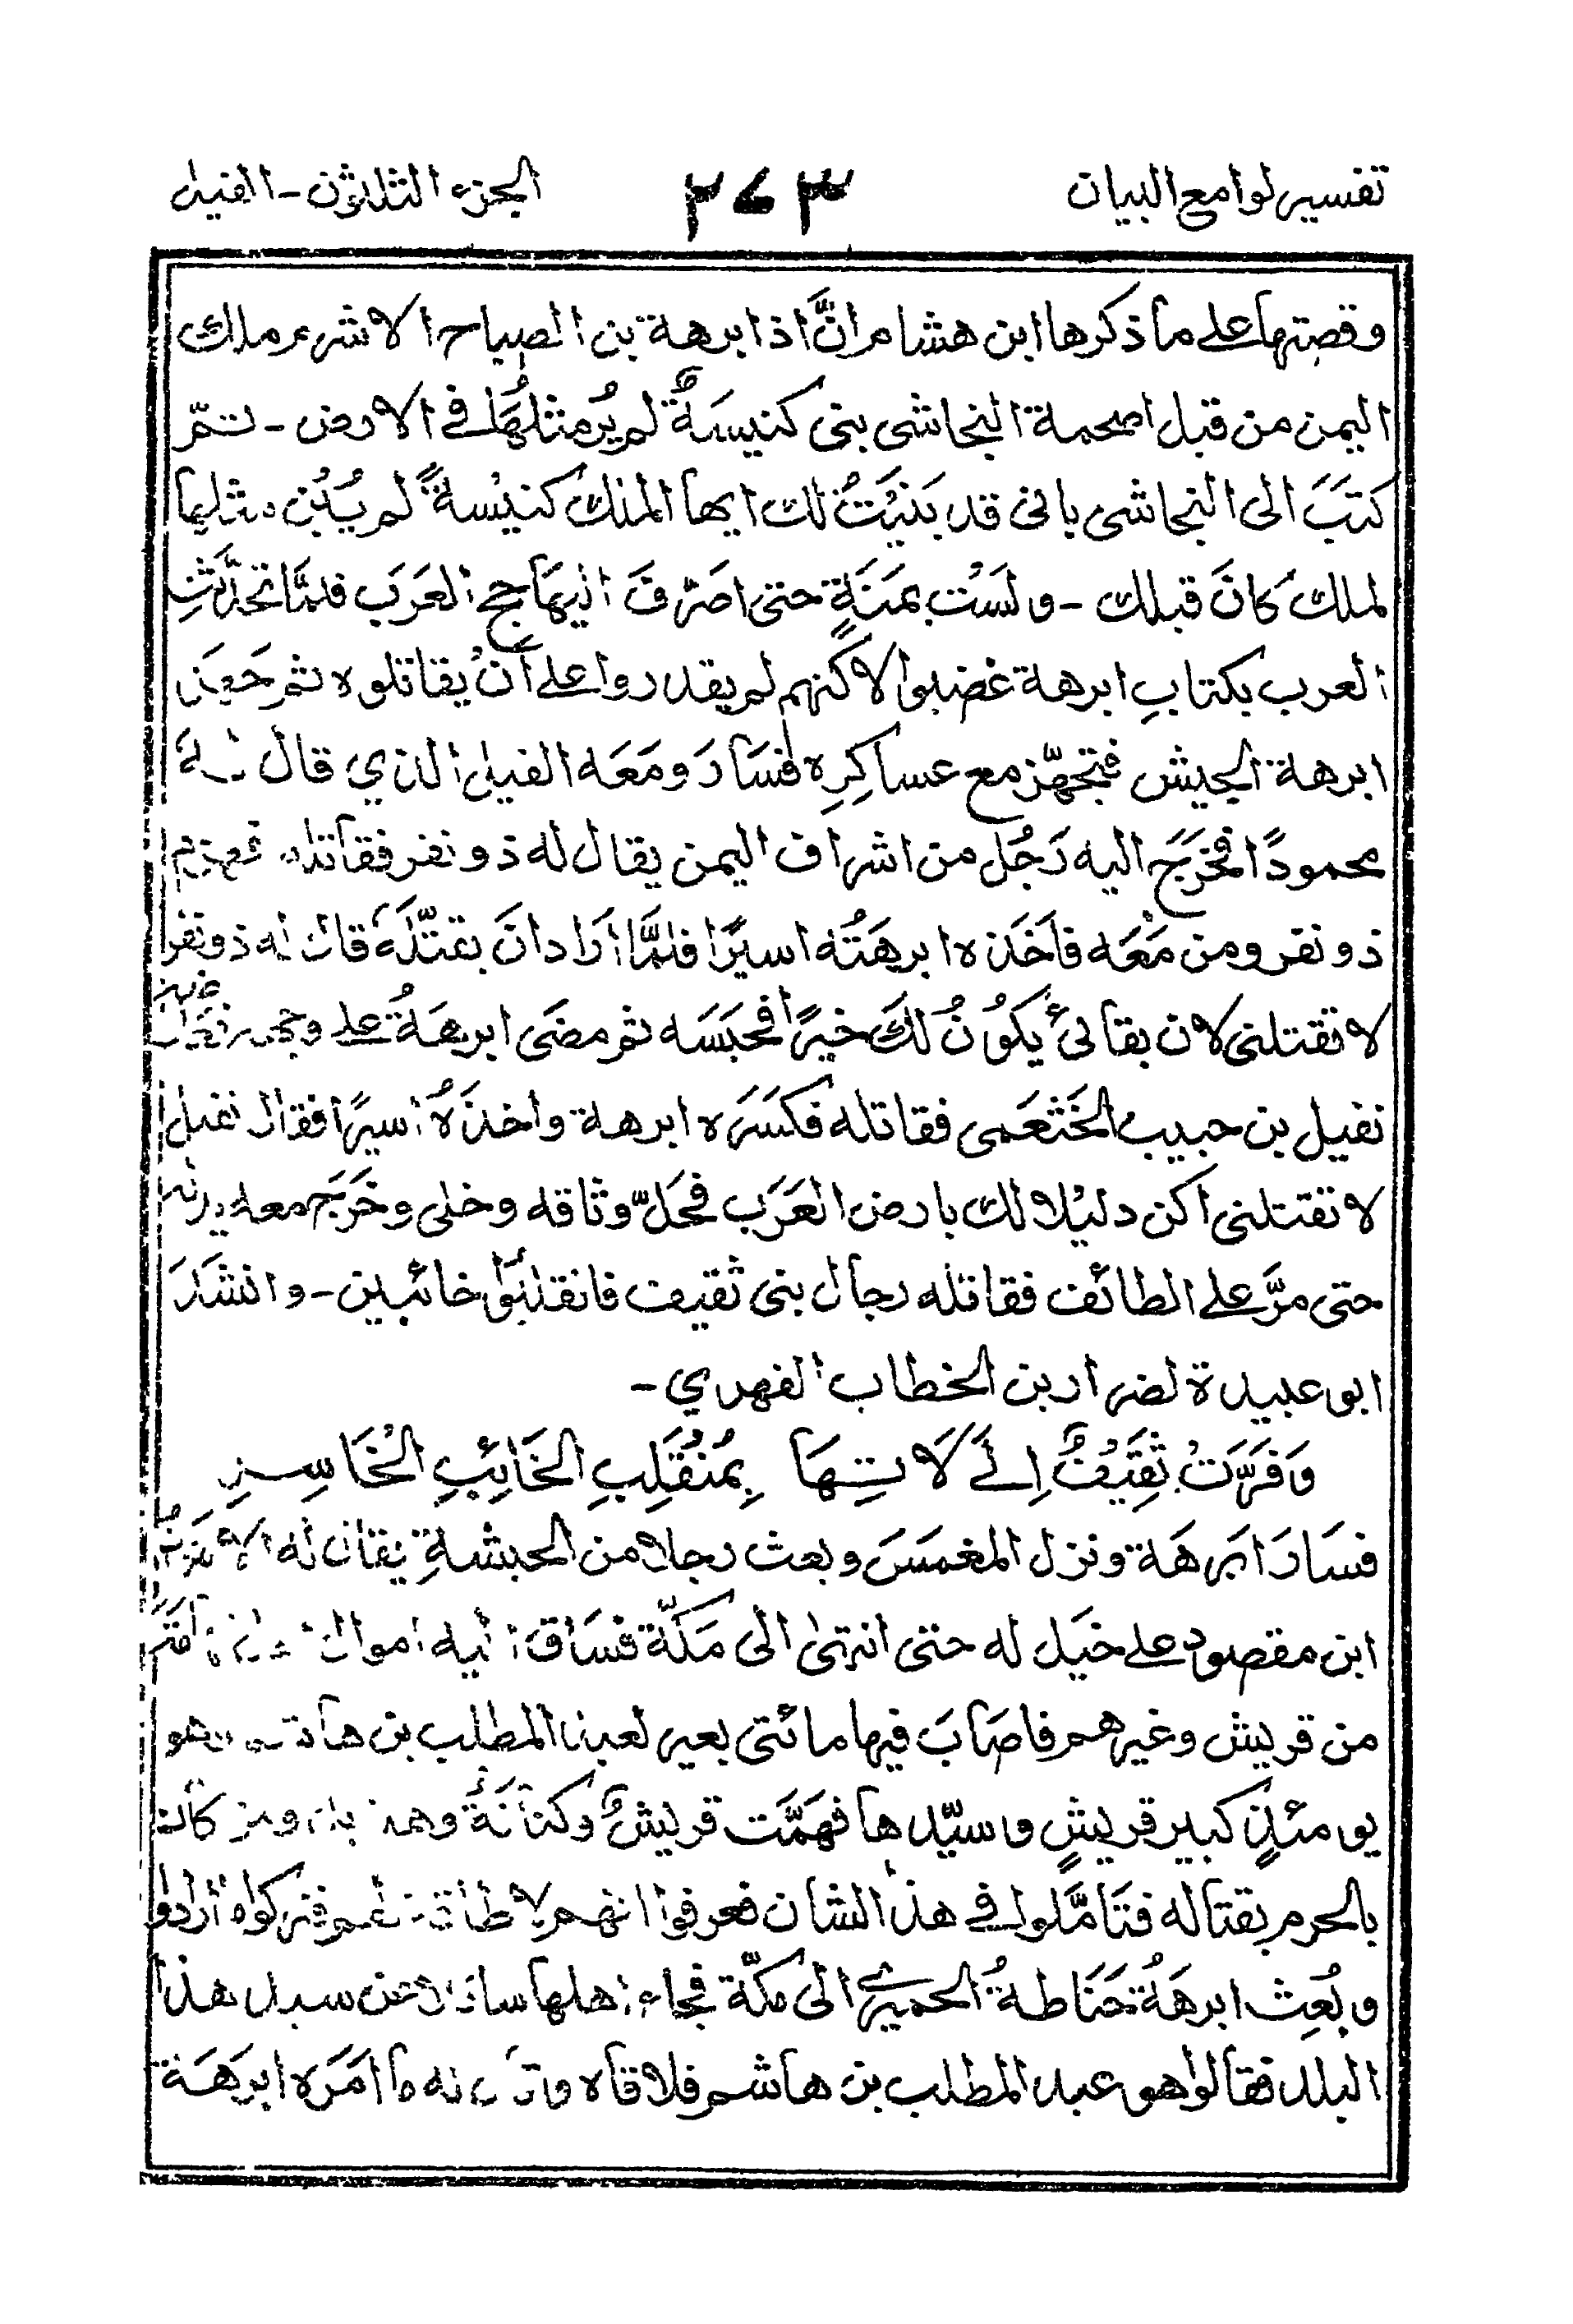 تفسير لوامع البيان ٢٧٣ الجزء الثلاثون - الفيل
وقصتها على ما ذكرها ابن هشام انَّ اذا ابرهة بن الصباح الاشرم ملك
اليمن من قبل اصحمة النجاشى بنى كنيسَةٌ لم يُر مثلُهَا فى الارض - ثمّ
كتَبَ الى النجاشى بانى قد بَنَيْتُ لك ايها الملك كنيْسةً لم يُبْن مثلها
لملك كانَ قبلك - ولَسْت بمَنَةٍ حتى اصْرفَ اليهَا حج العَرَب فلمَّا تحدَّثتِ
العرب بكتابِ ابرهة غضبوا لاكنهم لم يقدروا على اَنْ يقاتلوه ثم جَهَن
ابرهة الجيش فتجهّز مع عساكِرِه فَسَارَ ومَعَه الفيل الذي قال له
محمودًا فخَرَجَ اليه رَجُل من اشراف اليمن يقال له ذو نفر فقاتله فهزم
ذو نفر ومن مَعَه فاَخَذه ابرهَتُه اسيرًا فلمَّا اَرَادانَ بقتّلَهُ قال له ذو نفر
لا تقتلنى لان بقائىْ يكُوْنُ لكَ خيرًا فحبَسَه ثم مضَى ابرهَةُ على وجهه
نفيل بن حبيب الخَثعَمى فقاتله فكسَرَه ابرهة واخذَهُ اسيرًا فقال نفيل
لا تقتلنى اكن دليْلا لك بارض العَرَب فحَلّ وثاقه وخلى وخَرَجَ معه
حتى مرَّ على الطائف فقاتله رجال بنى ثقيف فانقلبُوْا خائبين - وانشَدَ
ابو عبيدة لضرار بن الخطاب الفهري -
وَفَرَّتْ ثَقِيْفٌ اِلَے لَاتِهَا بِمُنْقَلِبِ الخَائِبِ الْخَاسِرِ
فسَارَ ابَرهَة ونزل المغمسَ وبعث رجلا من الحبشةِ يقال له الاسْوَدُ
ابن مقصود على خيَل له حتى انتهىٰ الى مَكّة فسَاقَ اليه اموال
من قريش وغيرهم فاصَابَ فيها مائتى بعير لعبد المطلب بن هاشم وهو
يومئذٍ كبير قريشٍ وسيّدها فهَمَّت قريشٌ وكنَانَةُ وهذيل ومن كان
بالحرم بقتاله فتَامَّلوا فى هذا الشان فعرفوا انهم لا طاقة لهم فتركواه اَرادوا
وبُعِث ابرهَةُ حَنَاطةُ الحميري الى مكّة فجاء اهلها سائلا عن سيد هذا
البلد فقالوا هو عبد المطلب بن هاشم فلاقاه وقال له ما امَرَه ابرَهَة